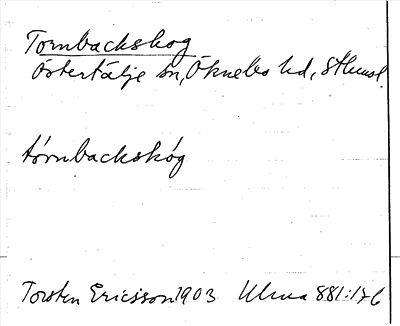 Tornbackskog
Östertälje sn, Öknebo hd, Sthmsl.
tórnbackskóg
Torsten Ericsson 1903 Ulma 881:176